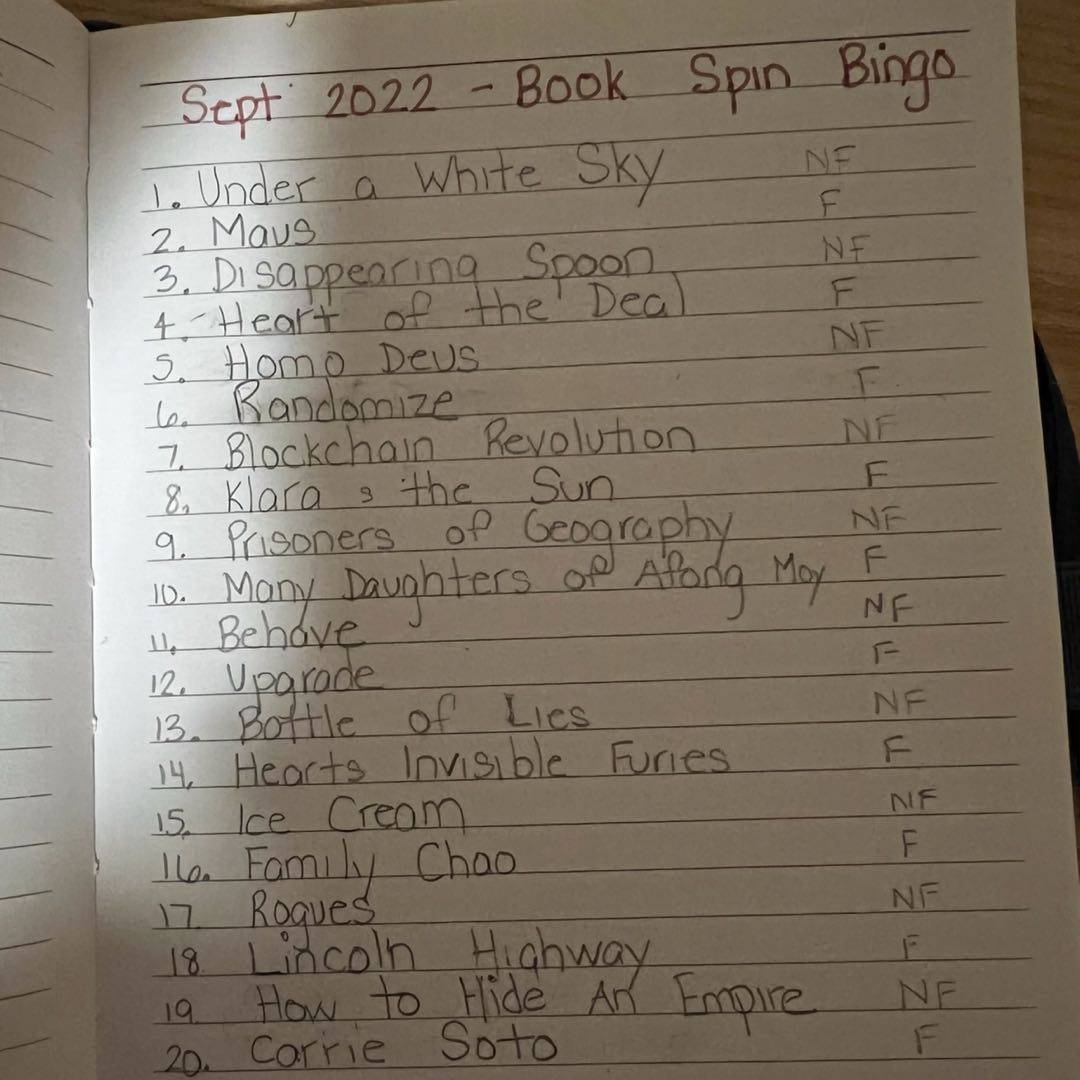 Sept 2022 - Book Spin Bingo
1. Under a White Sky NF
2. Maus F
3. Disappearing Spoon NF
4. Heart of the Deal F
5. Homo Deus NF
6. Randomize F
7. Blockchain Revolution NF
8. Klara & the Sun F
9. Prisoners of Geography NF
10. Many Daughters of Afong Moy F
11. Behave NF
12. Upgrade F
13. Bottle of Lies NF
14. Hearts Invisible Furies F
15. Ice Cream NF
16. Family Chao F
17 Rogues NF
18 Lincoln Highway F
19 How to Hide An Empire NF
20. Carrie Soto F